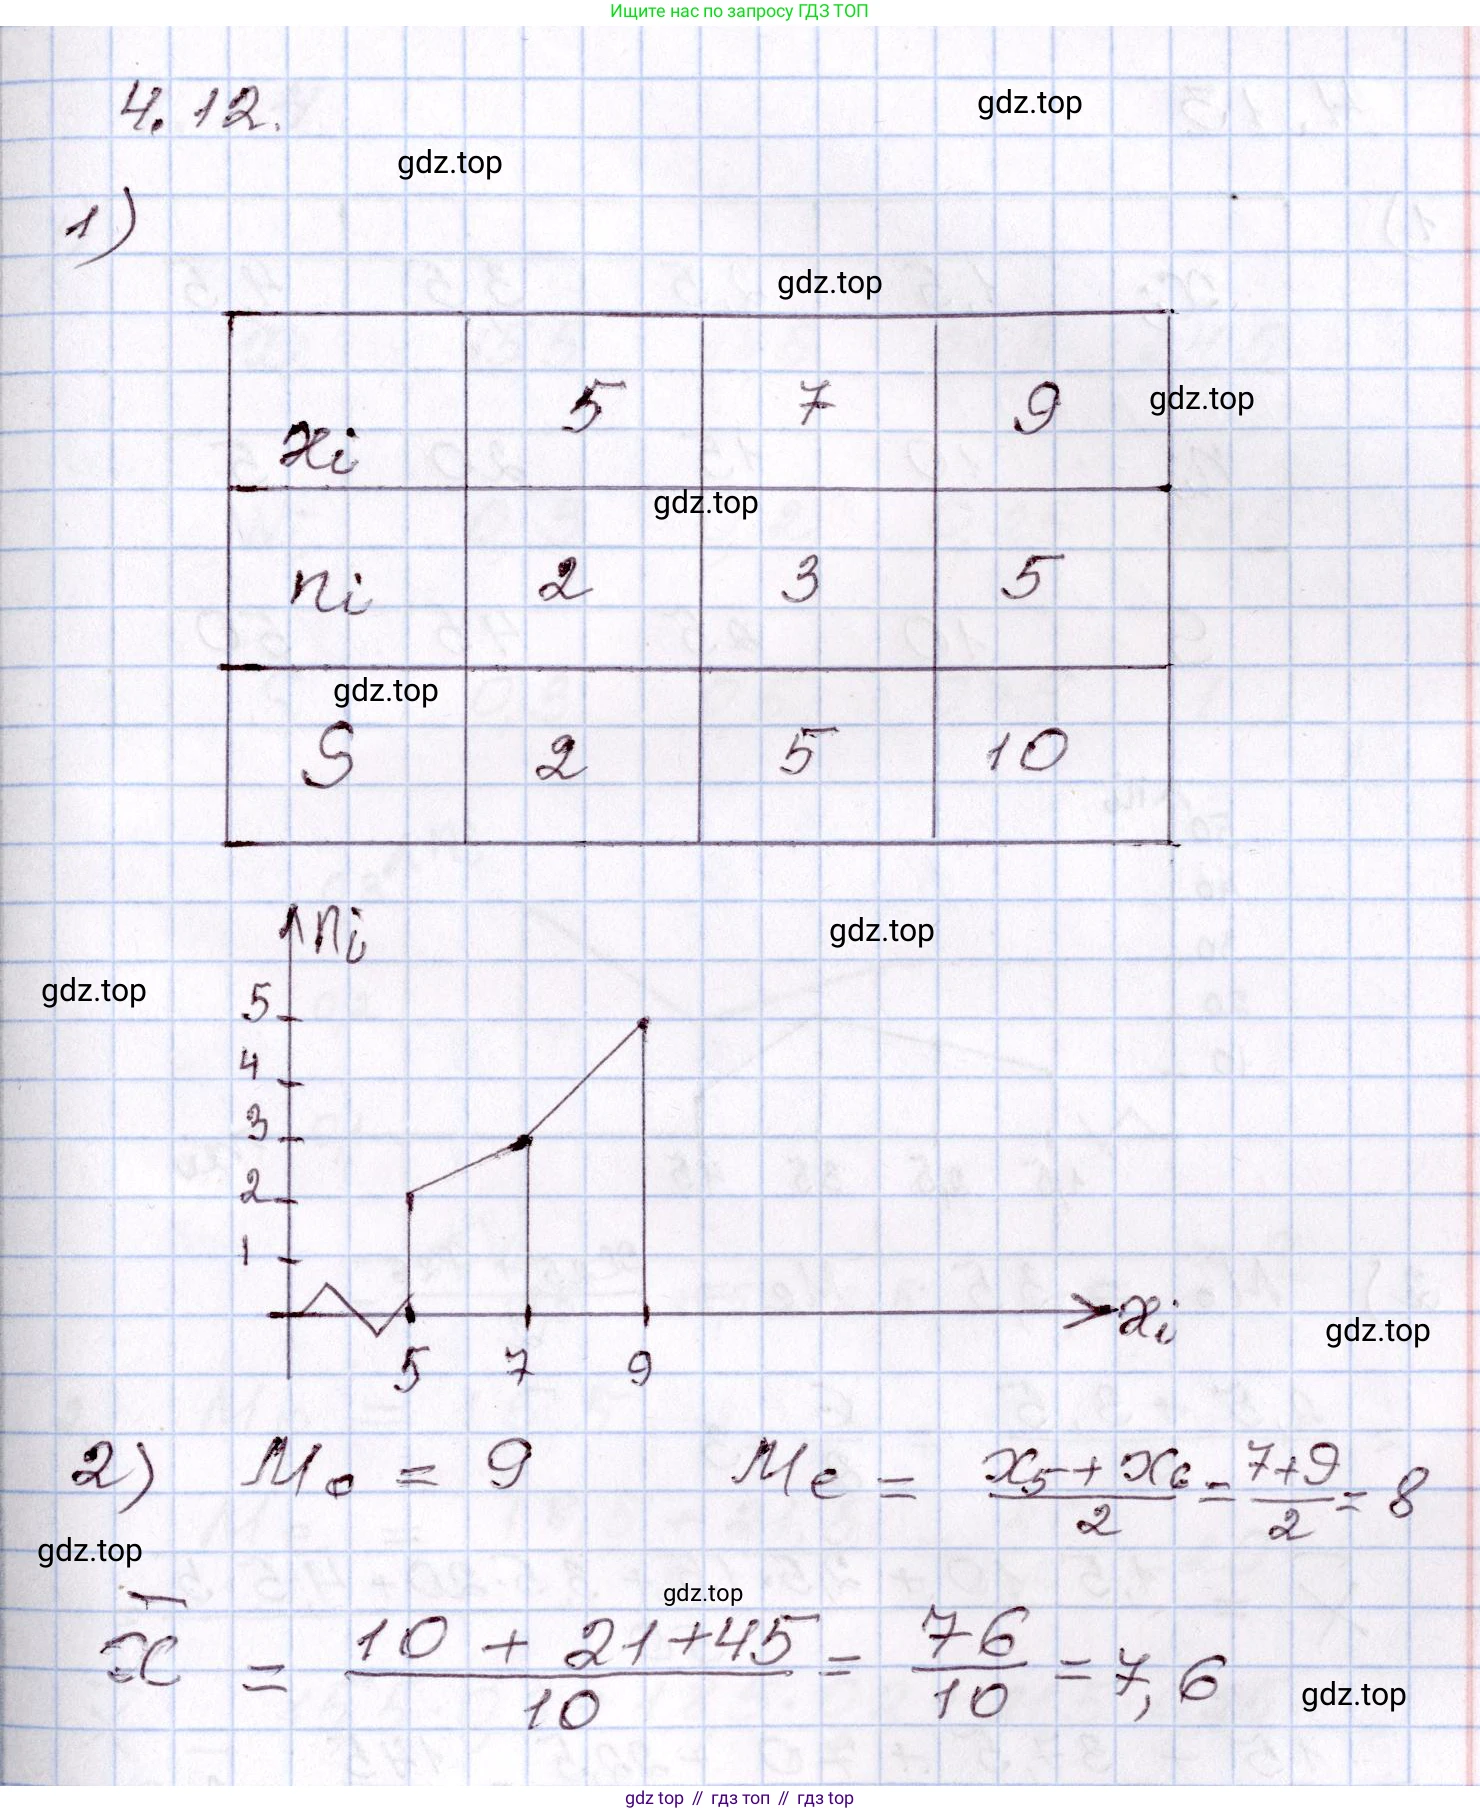 Ищите нас по запросу ГДЗ ТОП
4.12.
gdz.top
gdz.top
1)
gdz.top
xi 5 7 9
gdz.top
gdz.top
ni 2 3 5
gdz.top
S 2 5 10
ni
gdz.top
gdz.top
5
4
3
2
1
xi
gdz.top
5 7 9
2) Mo = 9 Me = x5 + x6 / 2 = 7+9 / 2 = 8
gdz.top
gdz.top
x̄ = 10 + 21 + 45 / 10 = 76 / 10 = 7,6
gdz.top
gdz top // гдз топ // гдз top